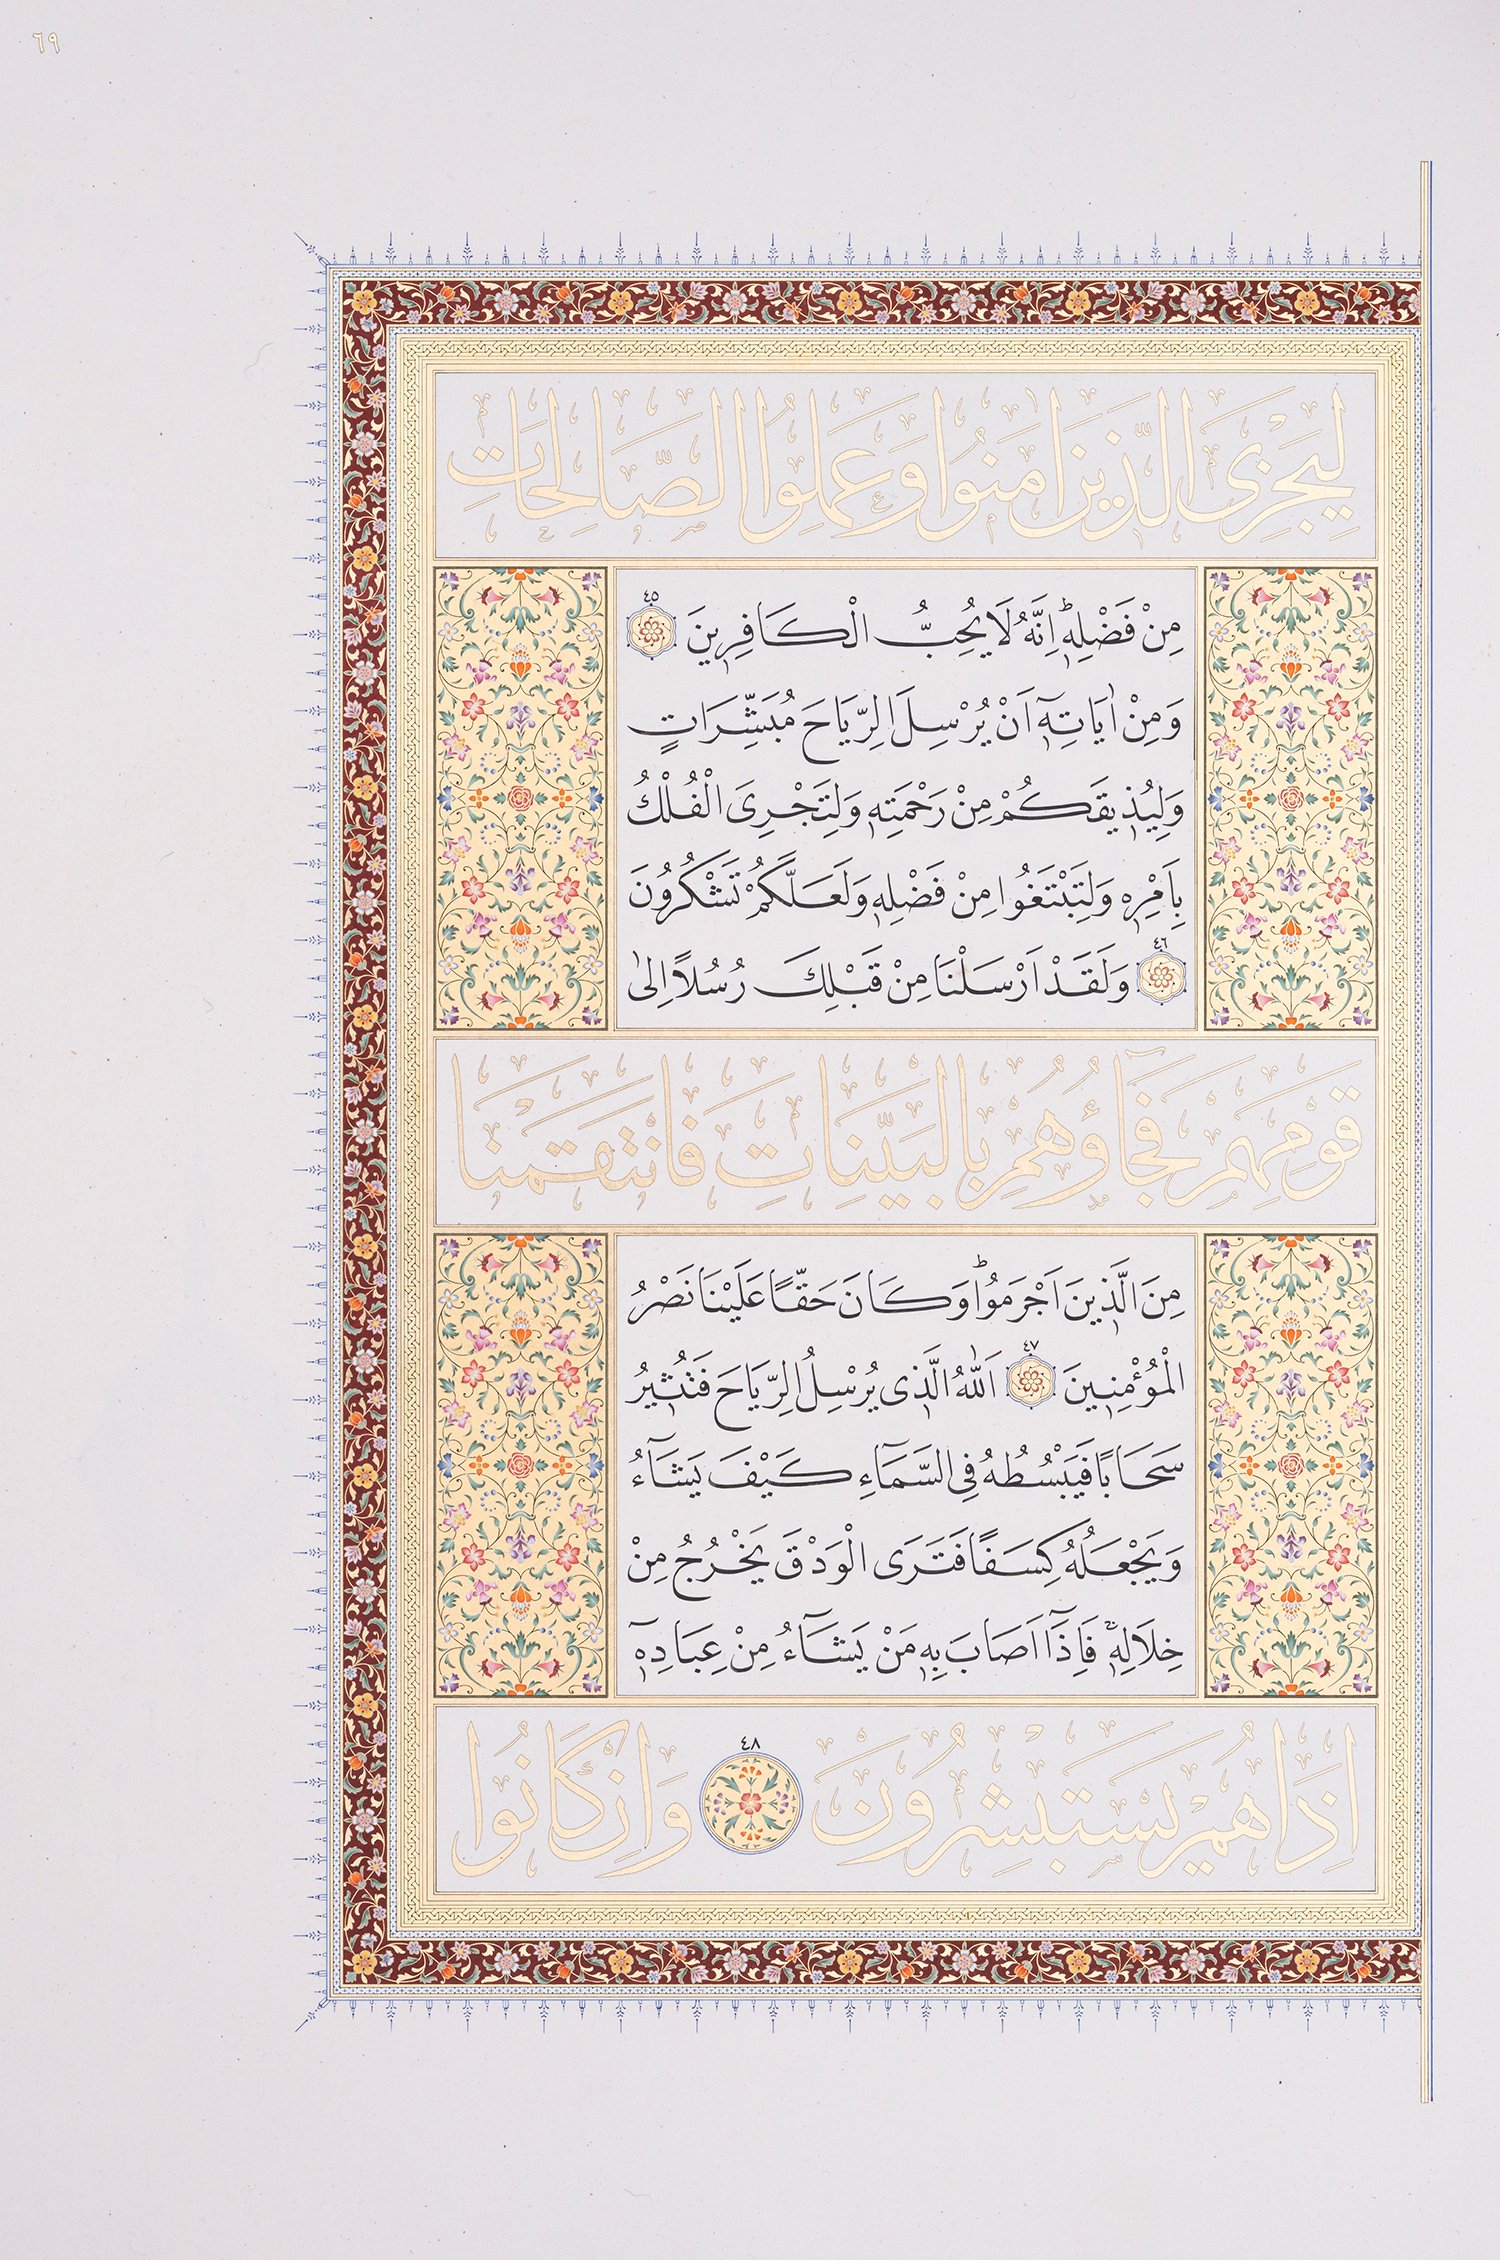 ٦٩
لِيَجْزِىَ الَّذ۪ينَ اٰمَنُوا وَعَمِلُوا الصَّالِحَاتِ
مِنْ فَضْلِه۪ۜ اِنَّهُ لَا يُحِبُّ الْكَافِر۪ينَ ٤٥
وَمِنْ اٰيَاتِه۪ٓ اَنْ يُرْسِلَ الرِّيَاحَ مُبَشِّرَاتٍ
وَلِيُذ۪يقَكُمْ مِنْ رَحْمَتِه۪ وَلِتَجْرِىَ الْفُلْكُ
بِاَمْرِه۪ وَلِتَبْتَغُوا مِنْ فَضْلِه۪ وَلَعَلَّكُمْ تَشْكُرُونَ
٤٦ وَلَقَدْ اَرْسَلْنَا مِنْ قَبْلِكَ رُسُلًا اِلٰى
قَوْمِهِمْ فَجَٓاؤُ۫هُمْ بِالْبَيِّنَاتِ فَانْتَقَمْنَا
مِنَ الَّذ۪ينَ اَجْرَمُواۜ وَكَانَ حَقًّا عَلَيْنَا نَصْرُ
الْمُؤْمِن۪ينَ ٤٧ اَللّٰهُ الَّذ۪ى يُرْسِلُ الرِّيَاحَ فَتُث۪يرُ
سَحَابًا فَيَبْسُطُهُ فِى السَّمَٓاءِ كَيْفَ يَشَٓاءُ
وَيَجْعَلُهُ كِسَفًا فَتَرَى الْوَدْقَ يَخْرُجُ مِنْ
خِلَالِه۪ۚ فَاِذَٓا اَصَابَ بِه۪ مَنْ يَشَٓاءُ مِنْ عِبَادِه۪ٓ
اِذَا هُمْ يَسْتَبْشِرُونَ ٤٨ وَاِنْ كَانُوا